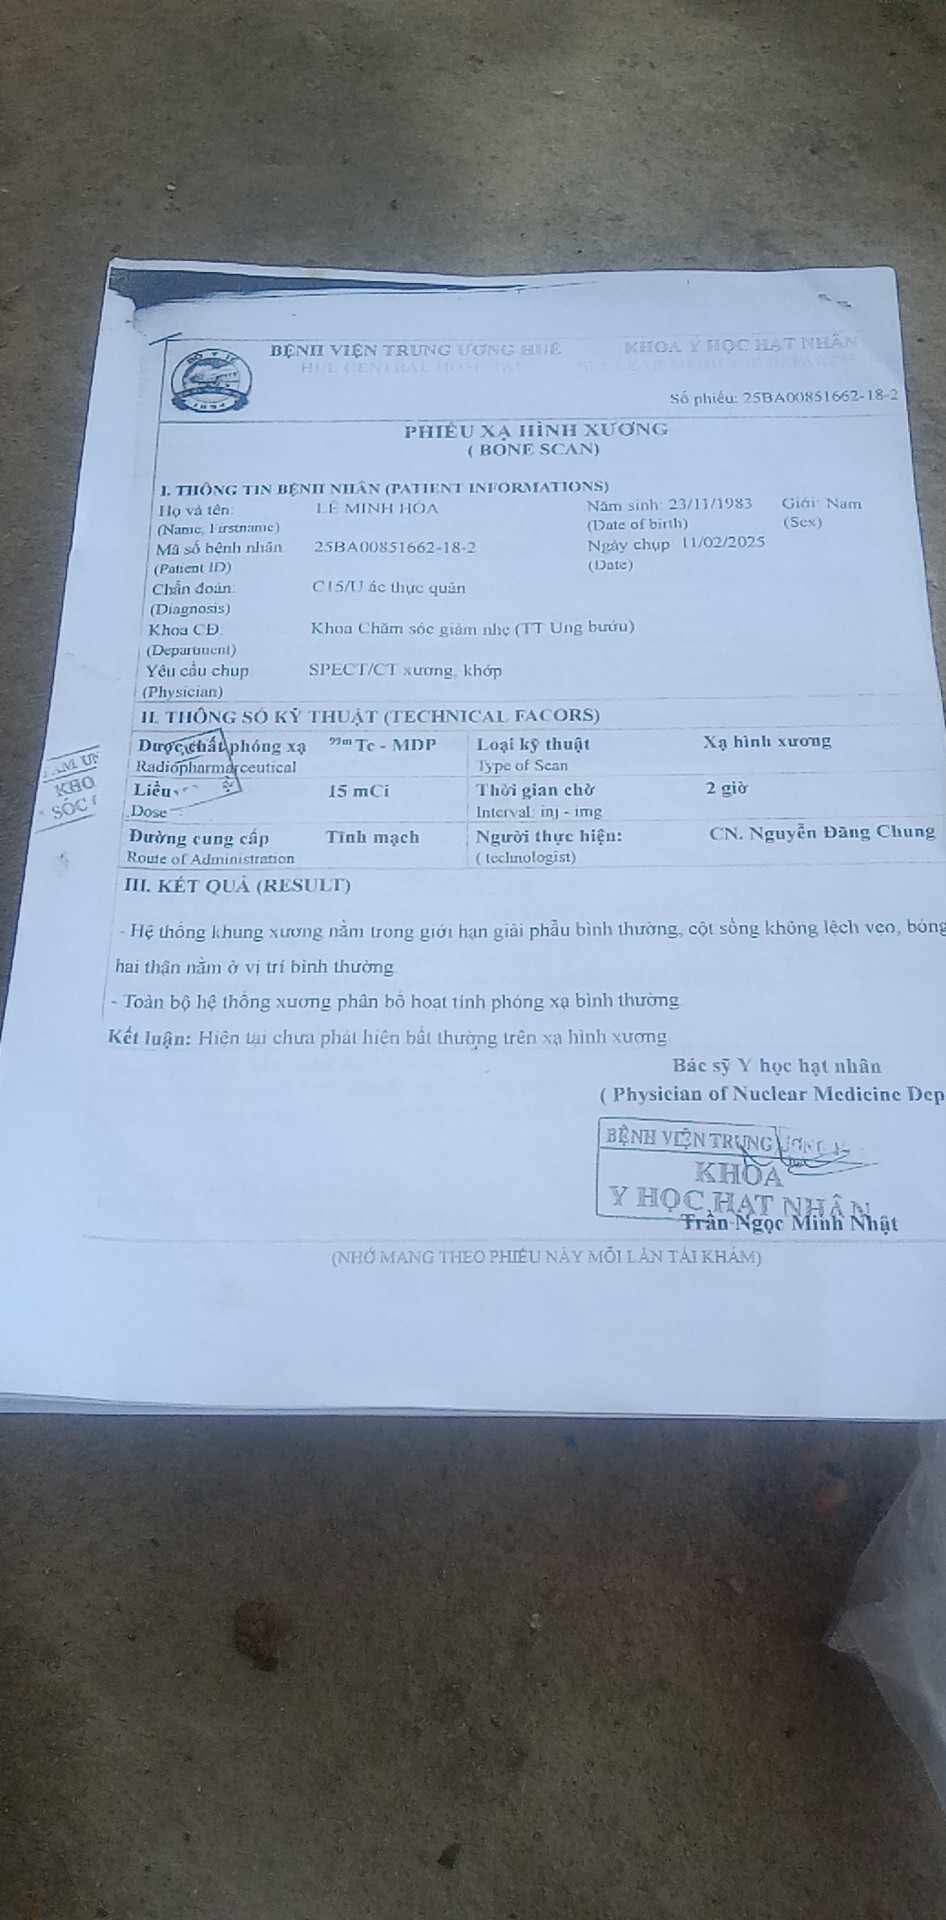 BỘ Y TẾ
1894
BỆNH VIỆN TRUNG ƯƠNG HUẾ KHOA Y HỌC HẠT NHÂN
HUE CENTRAL
Số phiếu: 25BA00851662-18-2
PHIẾU XẠ HÌNH XƯƠNG
( BONE SCAN)
I. THÔNG TIN BỆNH NHÂN (PATIENT INFORMATIONS)
Họ và tên: LÊ MINH HÒA Năm sinh: 23/11/1983 Giới: Nam
(Name, Firstname) (Date of birth) (Sex)
Mã số bệnh nhân 25BA00851662-18-2 Ngày chụp 11/02/2025
(Patient ID) (Date)
Chẩn đoán: C15/U ác thực quản
(Diagnosis)
Khoa CĐ: Khoa Chăm sóc giảm nhẹ (TT Ung bướu)
(Department)
Yêu cầu chụp SPECT/CT xương, khớp
(Physician)
II. THÔNG SỐ KỸ THUẬT (TECHNICAL FACORS)
Dược chất phóng xạ 99m Tc - MDP Loại kỹ thuật Xạ hình xương
Radiopharmarceutical Type of Scan
Liều 15 mCi Thời gian chờ 2 giờ
Dose Interval: inj - img
Đường cung cấp Tĩnh mạch Người thực hiện: CN. Nguyễn Đăng Chung
Route of Administration ( technologist)
KHO
SÓC
III. KẾT QUẢ (RESULT)
- Hệ thống khung xương nằm trong giới hạn giải phẫu bình thường, cột sống không lệch vẹo, bóng
hai thận nằm ở vị trí bình thường.
- Toàn bộ hệ thống xương phân bố hoạt tính phóng xạ bình thường.
Kết luận: Hiện tại chưa phát hiện bất thường trên xạ hình xương
Bác sỹ Y học hạt nhân
( Physician of Nuclear Medicine Dep
BỆNH VIỆN TRUNG ƯƠNG
KHOA
Y HỌC HẠT NHÂN
Trần Ngọc Minh Nhật
(NHỚ MANG THEO PHIẾU NÀY MỖI LẦN TÁI KHÁM)